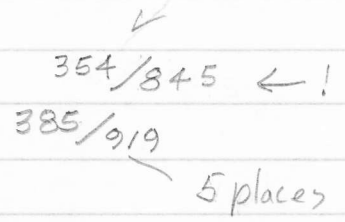 ✓
354/845 ← !
385/919
5 places